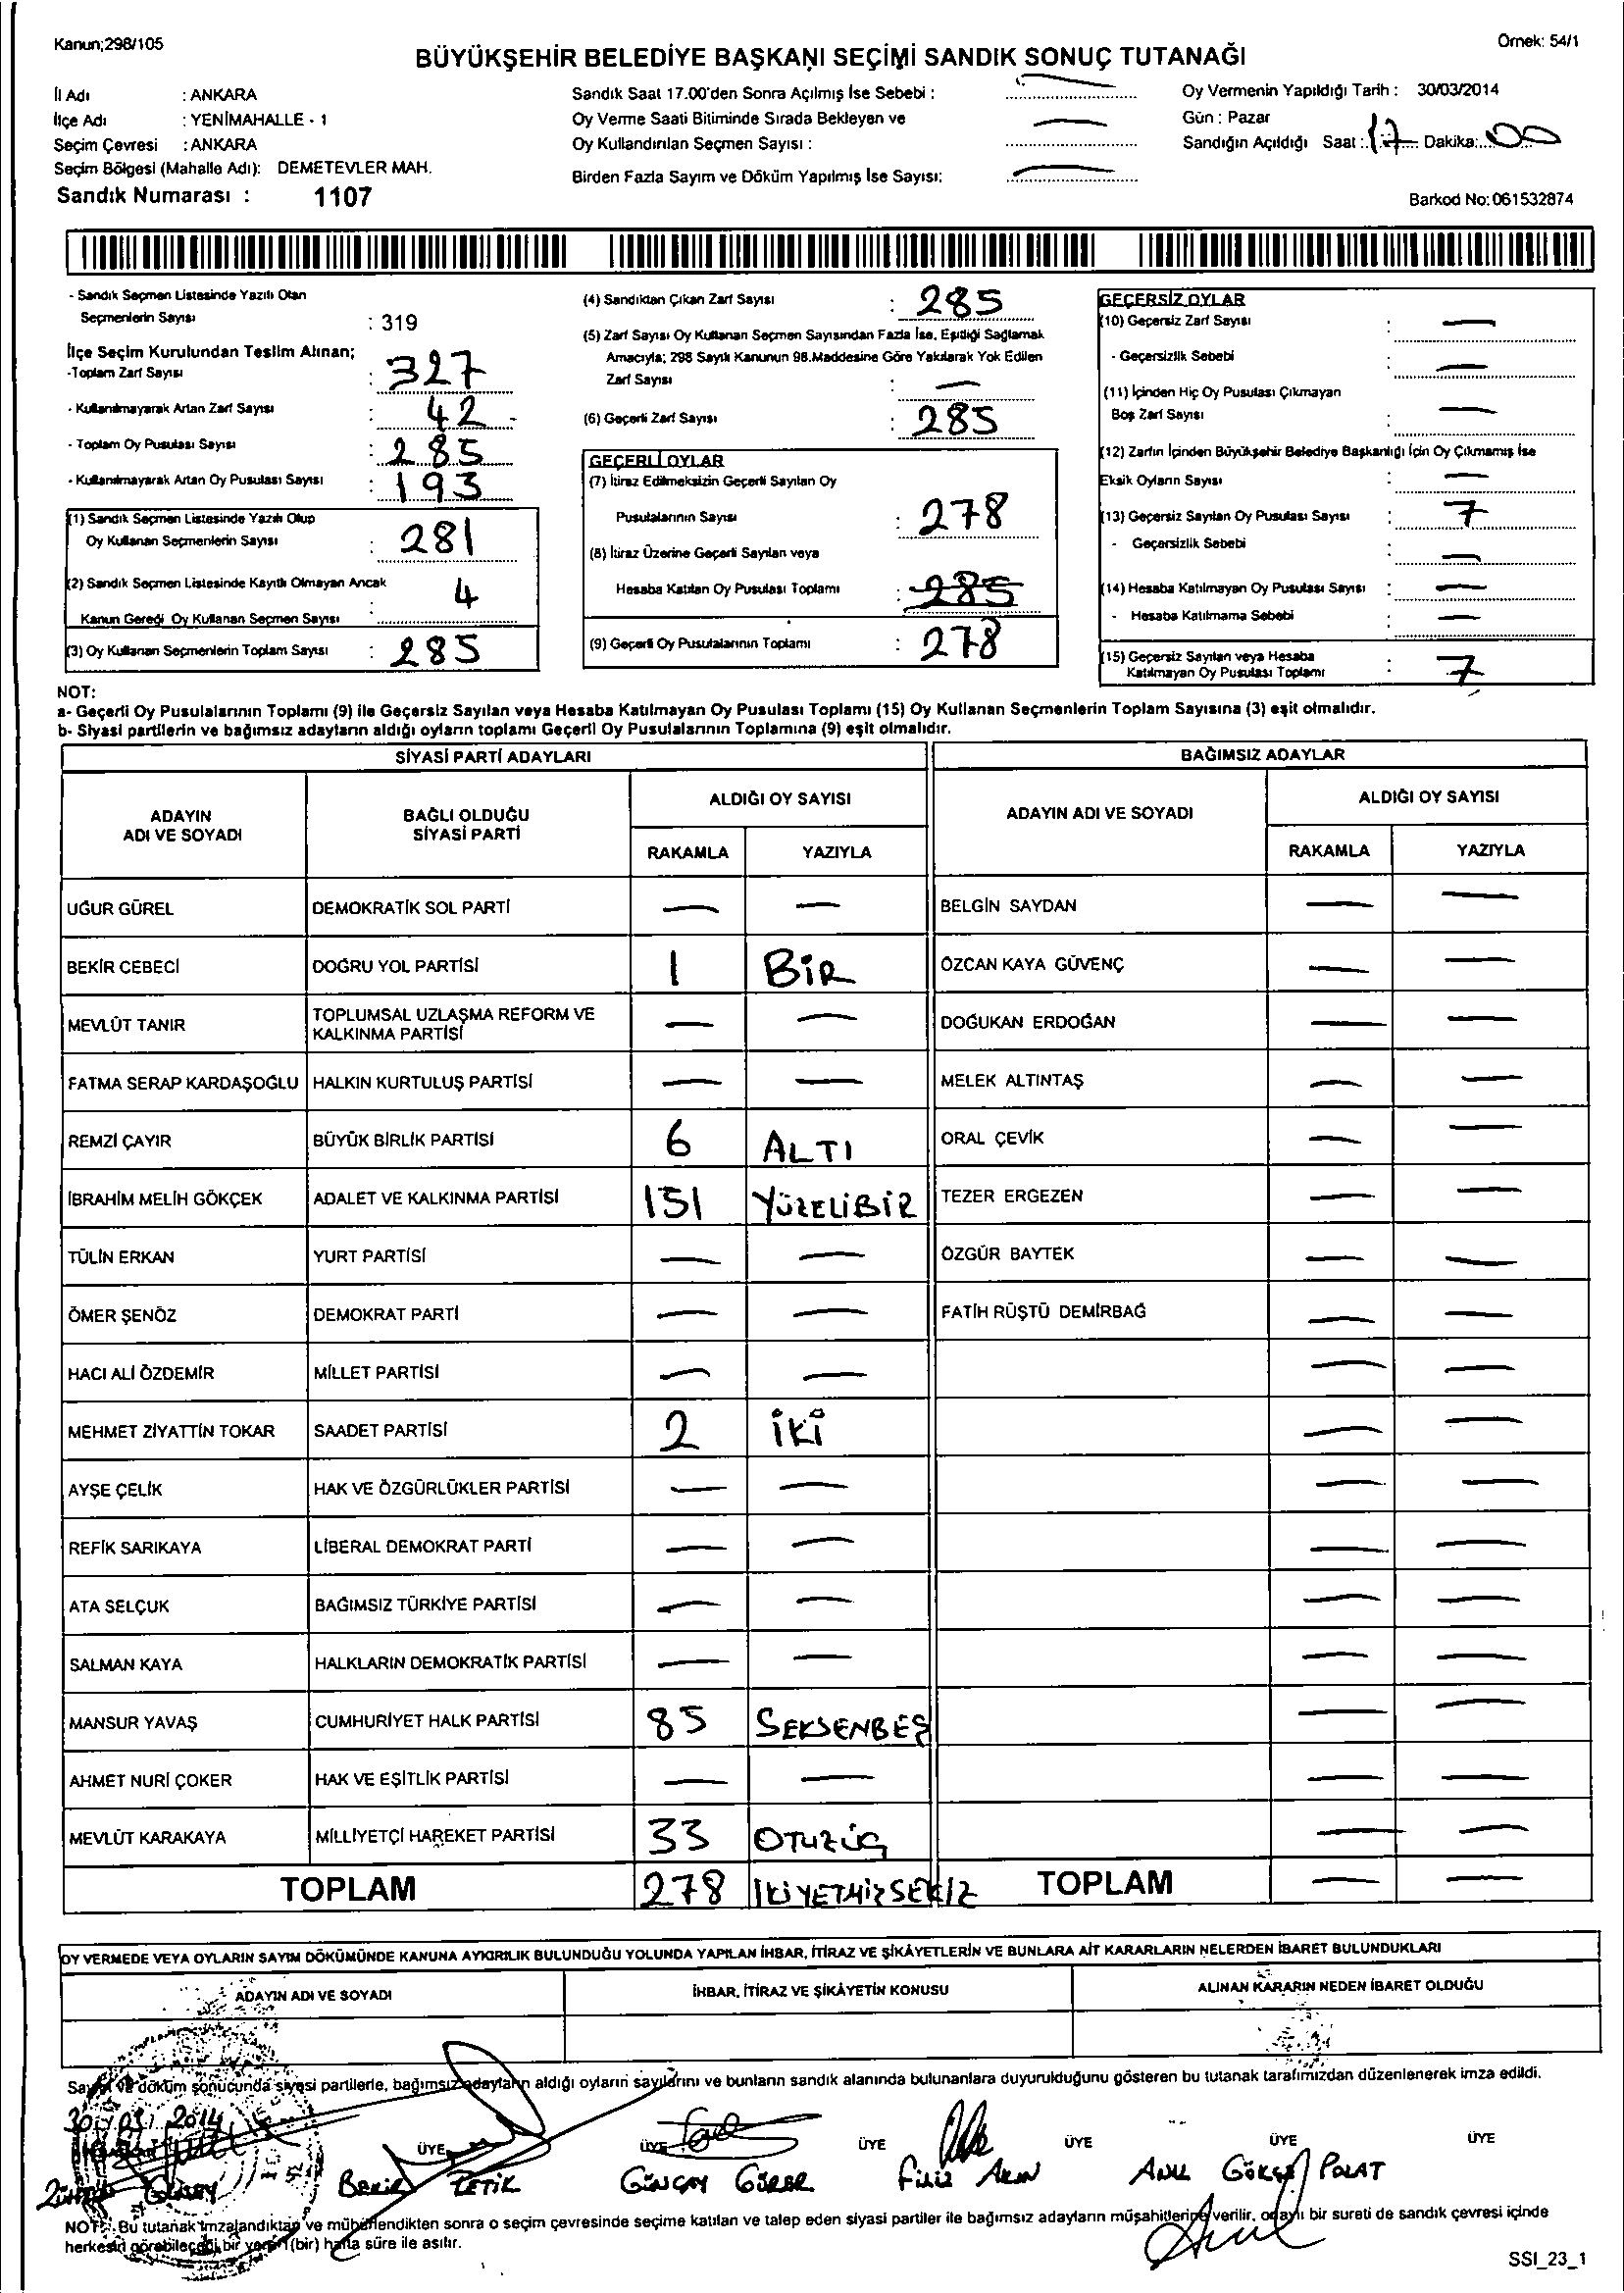 Kanun;298/105
Örnek: 54/1
BÜYÜKŞEHİR BELEDİYE BAŞKANI SEÇİMİ SANDIK SONUÇ TUTANAĞI
İl Adı : ANKARA
İlçe Adı : YENİMAHALLE - 1
Seçim Çevresi : ANKARA
Seçim Bölgesi (Mahalle Adı): DEMETEVLER MAH.
Sandık Numarası : 1107
Sandık Saat 17.00'den Sonra Açılmış İse Sebebi :
Oy Verme Saati Bitiminde Sırada Bekleyen ve
Oy Kullandırılan Seçmen Sayısı :
Birden Fazla Sayım ve Döküm Yapılmış İse Sayısı:
Oy Vermenin Yapıldığı Tarih : 30/03/2014
Gün : Pazar
Sandığın Açıldığı Saat : 17 Dakika: 00
Barkod No: 061532874
- Sandık Seçmen Listesinde Yazılı Olan
Seçmenlerin Sayısı : 319
İlçe Seçim Kurulundan Teslim Alınan;
-Toplam Zarf Sayısı : 327
- Kullanılmayarak Artan Zarf Sayısı : 42 -
- Toplam Oy Pusulası Sayısı : 285
- Kullanılmayarak Artan Oy Pusulası Sayısı : 193
(1) Sandık Seçmen Listesinde Yazılı Olup
Oy Kullanan Seçmenlerin Sayısı : 281
(2) Sandık Seçmen Listesinde Kayıtlı Olmayan Ancak
Kanun Gereği Oy Kullanan Seçmen Sayısı : 4
(3) Oy Kullanan Seçmenlerin Toplam Sayısı : 285
(4) Sandıktan Çıkan Zarf Sayısı : 285
(5) Zarf Sayısı Oy Kullanan Seçmen Sayısından Fazla İse, Eşitliği Sağlamak
Amacıyla; 298 Sayılı Kanunun 98.Maddesine Göre Yakılarak Yok Edilen
Zarf Sayısı : —
(6) Geçerli Zarf Sayısı : 285
GEÇERLİ OYLAR
(7) İtiraz Edilmeksizin Geçerli Sayılan Oy
Pusulalarının Sayısı : 278
(8) İtiraz Üzerine Geçerli Sayılan veya
Hesaba Katılan Oy Pusulası Toplamı : 285
(9) Geçerli Oy Pusulalarının Toplamı : 278
GEÇERSİZ OYLAR
(10) Geçersiz Zarf Sayısı : —
- Geçersizlik Sebebi : —
(11) İçinden Hiç Oy Pusulası Çıkmayan
Boş Zarf Sayısı : —
(12) Zarfın İçinden Büyükşehir Belediye Başkanlığı İçin Oy Çıkmamış İse
Eksik Oyların Sayısı : —
(13) Geçersiz Sayılan Oy Pusulası Sayısı : 7
- Geçersizlik Sebebi : —
(14) Hesaba Katılmayan Oy Pusulası Sayısı : —
- Hesaba Katılmama Sebebi : —
(15) Geçersiz Sayılan veya Hesaba
Katılmayan Oy Pusulası Toplamı : 7
NOT:
a- Geçerli Oy Pusulalarının Toplamı (9) ile Geçersiz Sayılan veya Hesaba Katılmayan Oy Pusulası Toplamı (15) Oy Kullanan Seçmenlerin Toplam Sayısına (3) eşit olmalıdır.
b- Siyasi partilerin ve bağımsız adayların aldığı oyların toplamı Geçerli Oy Pusulalarının Toplamına (9) eşit olmalıdır.
SİYASİ PARTİ ADAYLARI BAĞIMSIZ ADAYLAR
ADAYIN
ADI VE SOYADI
BAĞLI OLDUĞU
SİYASİ PARTİ
ALDIĞI OY SAYISI
RAKAMLA YAZIYLA
ADAYIN ADI VE SOYADI
ALDIĞI OY SAYISI
RAKAMLA YAZIYLA
UĞUR GÜREL DEMOKRATİK SOL PARTİ — — BELGİN SAYDAN — —
BEKİR CEBECİ DOĞRU YOL PARTİSİ 1 BİR ÖZCAN KAYA GÜVENÇ — —
MEVLÜT TANIR TOPLUMSAL UZLAŞMA REFORM VE
KALKINMA PARTİSİ — — DOĞUKAN ERDOĞAN — —
FATMA SERAP KARDAŞOĞLU HALKIN KURTULUŞ PARTİSİ — — MELEK ALTINTAŞ — —
REMZİ ÇAYIR BÜYÜK BİRLİK PARTİSİ 6 ALTI ORAL ÇEVİK — —
İBRAHİM MELİH GÖKÇEK ADALET VE KALKINMA PARTİSİ 151 YÜZELİBİR TEZER ERGEZEN — —
TÜLİN ERKAN YURT PARTİSİ — — ÖZGÜR BAYTEK — —
ÖMER ŞENÖZ DEMOKRAT PARTİ — — FATİH RÜŞTÜ DEMİRBAĞ — —
HACI ALİ ÖZDEMİR MİLLET PARTİSİ — — — —
MEHMET ZİYATTİN TOKAR SAADET PARTİSİ 2 İKİ — —
AYŞE ÇELİK HAK VE ÖZGÜRLÜKLER PARTİSİ — — — —
REFİK SARIKAYA LİBERAL DEMOKRAT PARTİ — — — —
ATA SELÇUK BAĞIMSIZ TÜRKİYE PARTİSİ — — — —
SALMAN KAYA HALKLARIN DEMOKRATİK PARTİSİ — — — —
MANSUR YAVAŞ CUMHURİYET HALK PARTİSİ 85 SEKSENBEŞ — —
AHMET NURİ ÇOKER HAK VE EŞİTLİK PARTİSİ — — — —
MEVLÜT KARAKAYA MİLLİYETÇİ HAREKET PARTİSİ 33 OTUZÜÇ — —
TOPLAM 278 İKİYETMİZSEKİZ TOPLAM — —
OY VERMEDE VEYA OYLARIN SAYIM DÖKÜMÜNDE KANUNA AYKIRILIK BULUNDUĞU YOLUNDA YAPILAN İHBAR, İTİRAZ VE ŞİKÂYETLERİN VE BUNLARA AİT KARARLARIN NELERDEN İBARET BULUNDUKLARI
ADAYIN ADI VE SOYADI İHBAR, İTİRAZ VE ŞİKÂYETİN KONUSU ALINAN KARARIN NEDEN İBARET OLDUĞU
Sayım ve döküm sonucunda siyasi partilerle, bağımsız adayların aldığı oyların sayılarını ve bunların sandık alanında bulunanlara duyurulduğunu gösteren bu tutanak tarafımızdan düzenlenerek imza edildi.
30/03/2014
ÜYE ÜYE ÜYE ÜYE ÜYE ÜYE
BEKİR PETİK GÜNÇAY GÜRER FİLİZ AKIN ANIL GÖKÇE POLAT
NOT: Bu tutanak imzalandıktan ve mühürlendikten sonra o seçim çevresinde seçime katılan ve talep eden siyasi partiler ile bağımsız adayların müşahitlerine verilir, onaylı bir sureti de sandık çevresi içinde
herkesin görebileceği bir yere 1 (bir) hafta süre ile asılır.
SSI_23_1